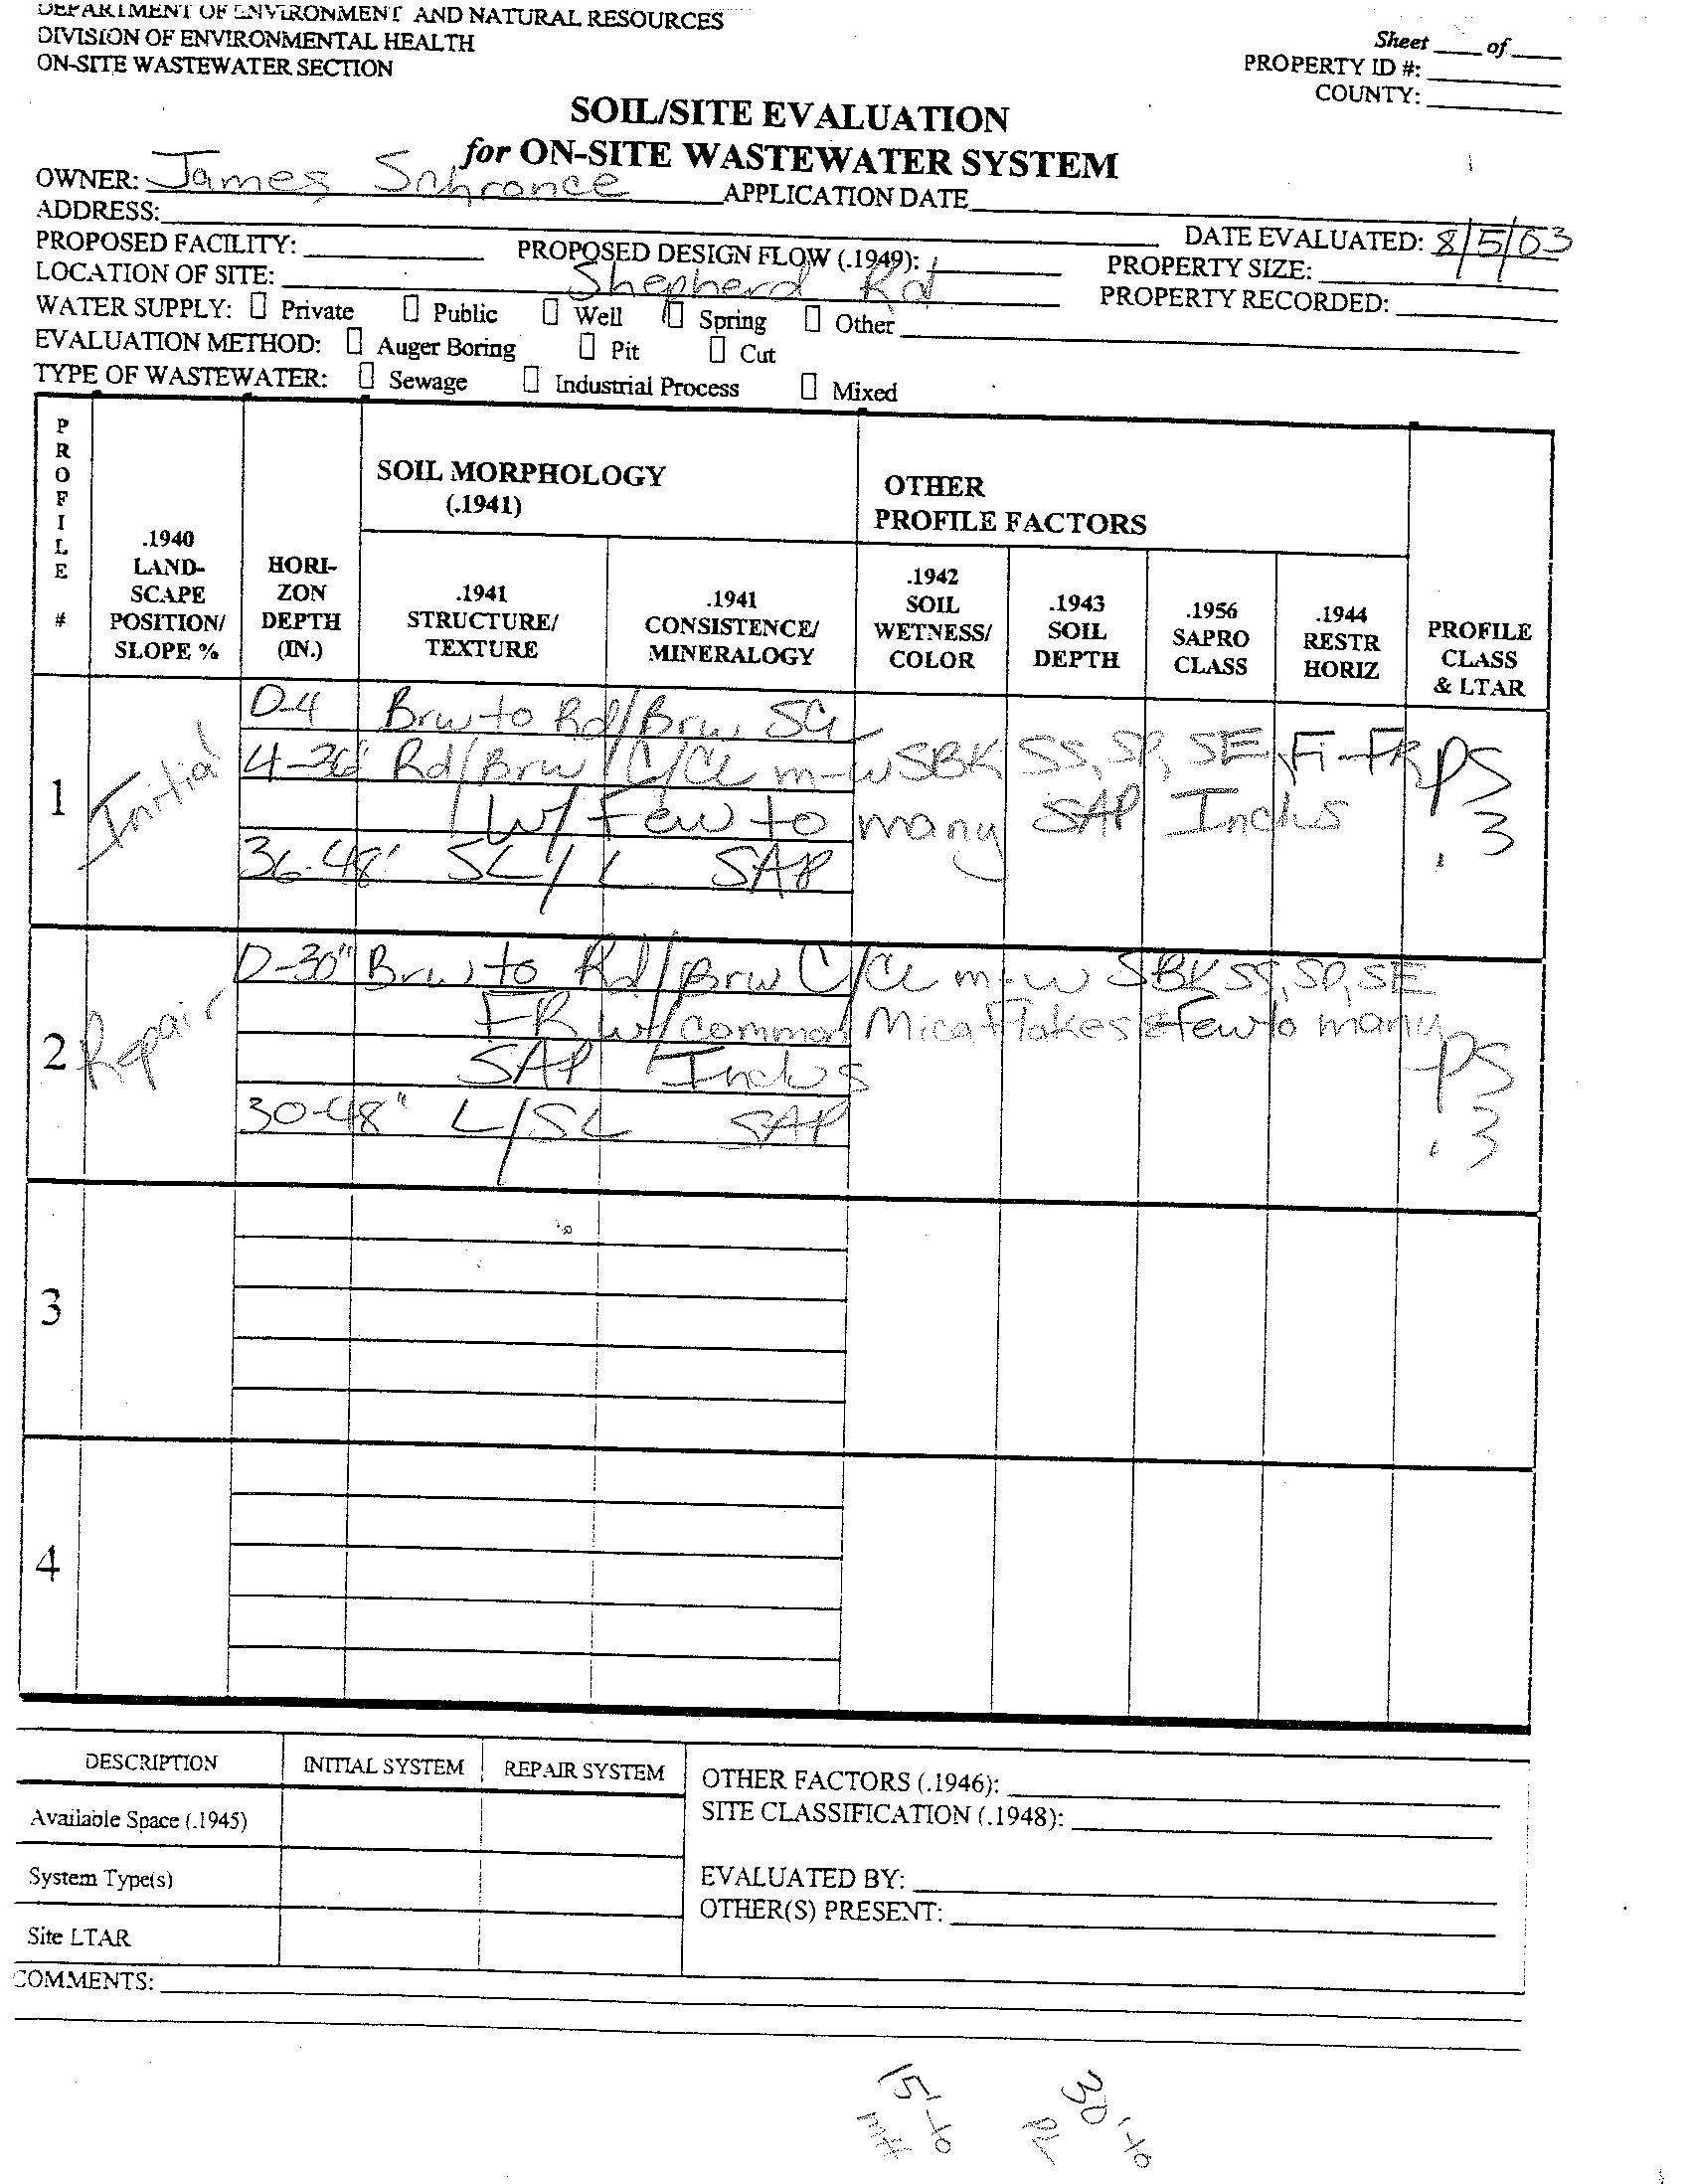 DEPARTMENT OF ENVIRONMENT AND NATURAL RESOURCES
DIVISION OF ENVIRONMENTAL HEALTH
ON-SITE WASTEWATER SECTION
Sheet ____ of ____
PROPERTY ID #: ____
COUNTY: ____
SOIL/SITE EVALUATION
for ON-SITE WASTEWATER SYSTEM
OWNER: James Schronce APPLICATION DATE ____
ADDRESS: ____ DATE EVALUATED: 8/5/03
PROPOSED FACILITY: ____ PROPOSED DESIGN FLOW (.1949): ____ PROPERTY SIZE: ____
LOCATION OF SITE: Shepherd Rd PROPERTY RECORDED: ____
WATER SUPPLY: Private Public Well Spring Other ____
EVALUATION METHOD: Auger Boring Pit Cut
TYPE OF WASTEWATER: Sewage Industrial Process Mixed
PROFILE #
.1940 LAND-SCAPE POSITION/ SLOPE %
HORI-ZON DEPTH (IN.)
SOIL MORPHOLOGY (.1941)
.1941 STRUCTURE/ TEXTURE
.1941 CONSISTENCE/ MINERALOGY
OTHER PROFILE FACTORS
.1942 SOIL WETNESS/ COLOR
.1943 SOIL DEPTH
.1956 SAPRO CLASS
.1944 RESTR HORIZ
PROFILE CLASS & LTAR
1 Initial
0-4 Brw to Rd/Brw SCL
4-36" Rd/Brw C/CL m-w SBK SS, SP, SE, Fi-FR PS
W/ Few to many SAP Inclus .3
36-48" SL/L SAP
2 Repair
0-30" Brw to Rd/Brw C/CL m-w SBK SS, SP, SE
FR w/ common Mica Flakes & Few to many PS
SAP Inclus
30-48" L/SL SAP .3
3
4
DESCRIPTION INITIAL SYSTEM REPAIR SYSTEM
Available Space (.1945)
System Type(s)
Site LTAR
OTHER FACTORS (.1946): ____
SITE CLASSIFICATION (.1948): ____
EVALUATED BY: ____
OTHER(S) PRESENT: ____
COMMENTS: ____
15' to
30' to
PL